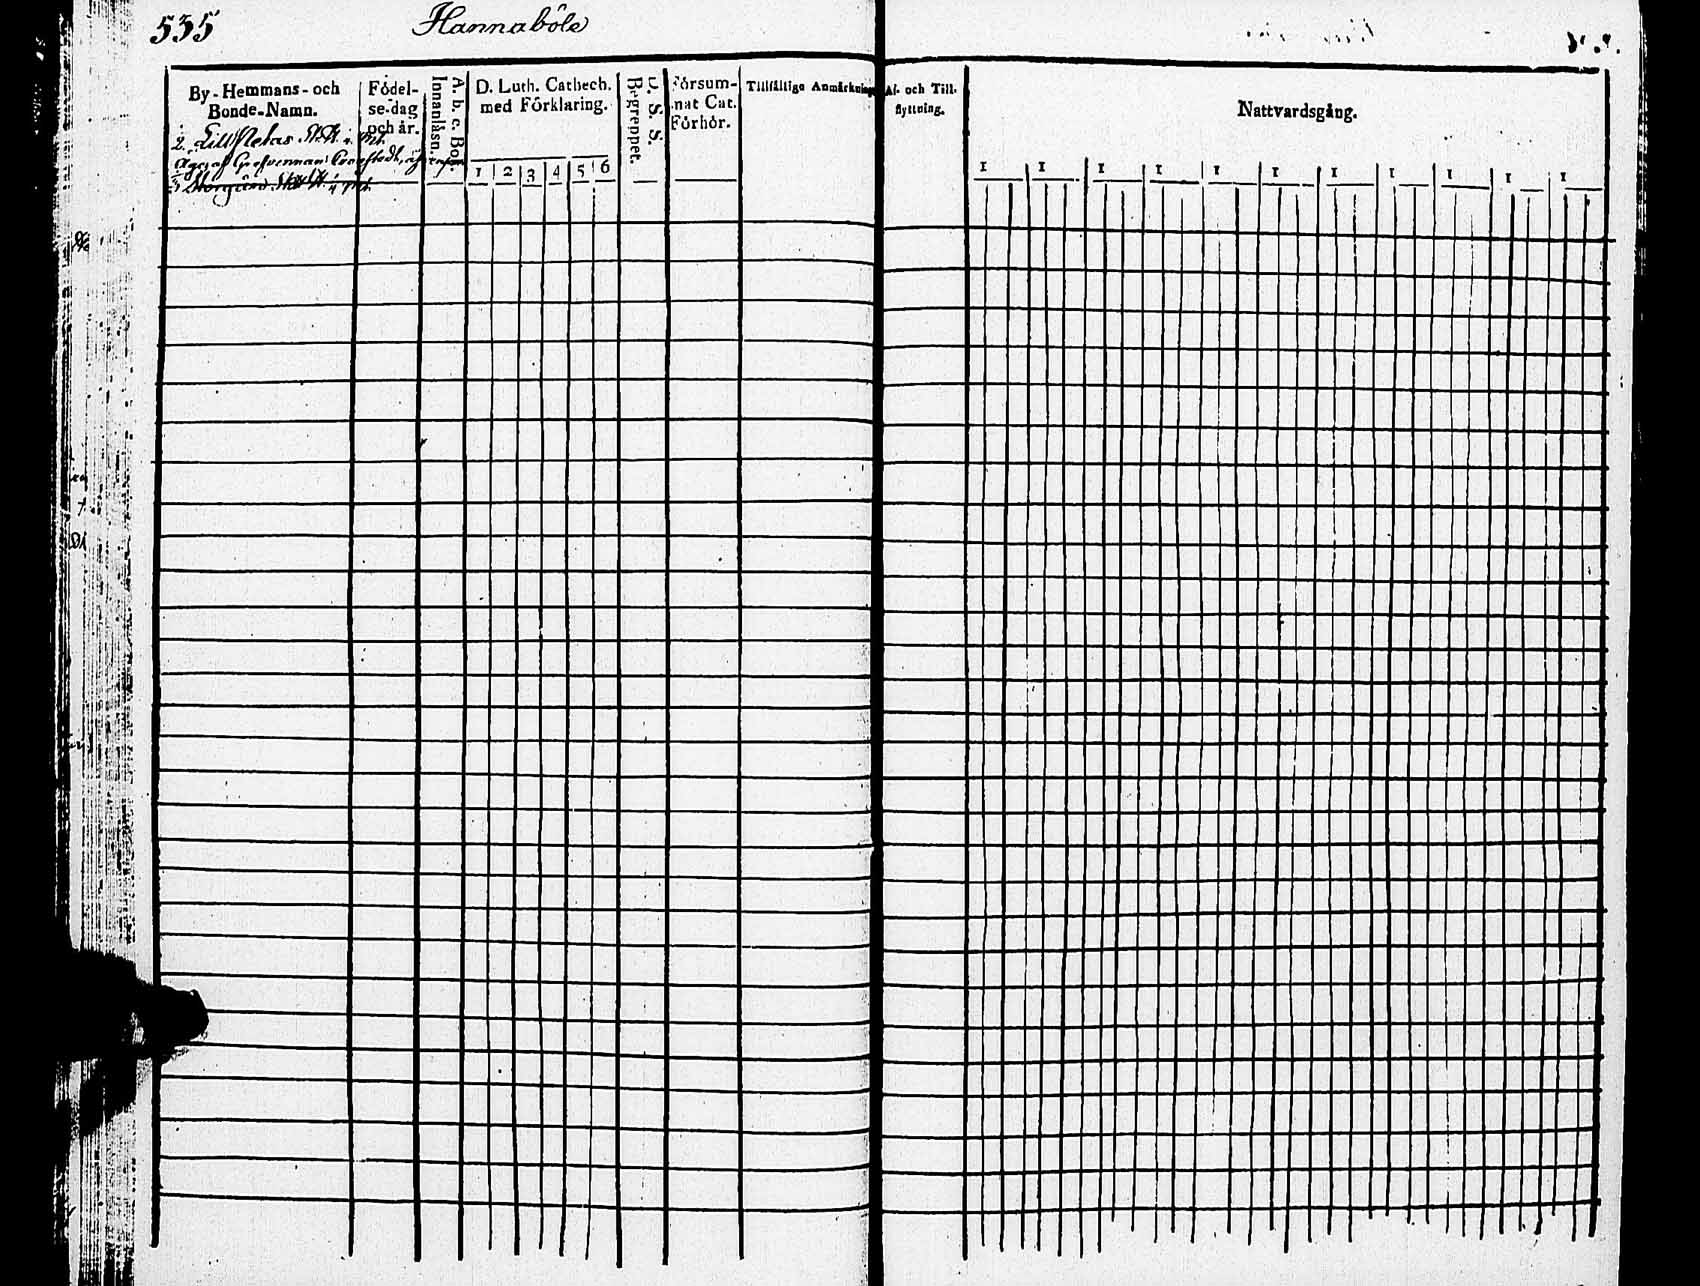 535
Hannaböle
By-Hemmans-och
Bonde-Namn.
Födel-
se-dag
och år.
A. b. c. Bok.
Innanläsn.
D. Luth. Cathech.
med Förklaring.
1 2 3 4 5 6
D. S. S.
Begreppet.
Försum-
nat Cat.
Förhör.
Tillfällige Anmärkningar
Af- och Till-
flyttning.
Nattvardsgång.
1 1 1 1 1 1 1 1 1 1 1
2. Lill